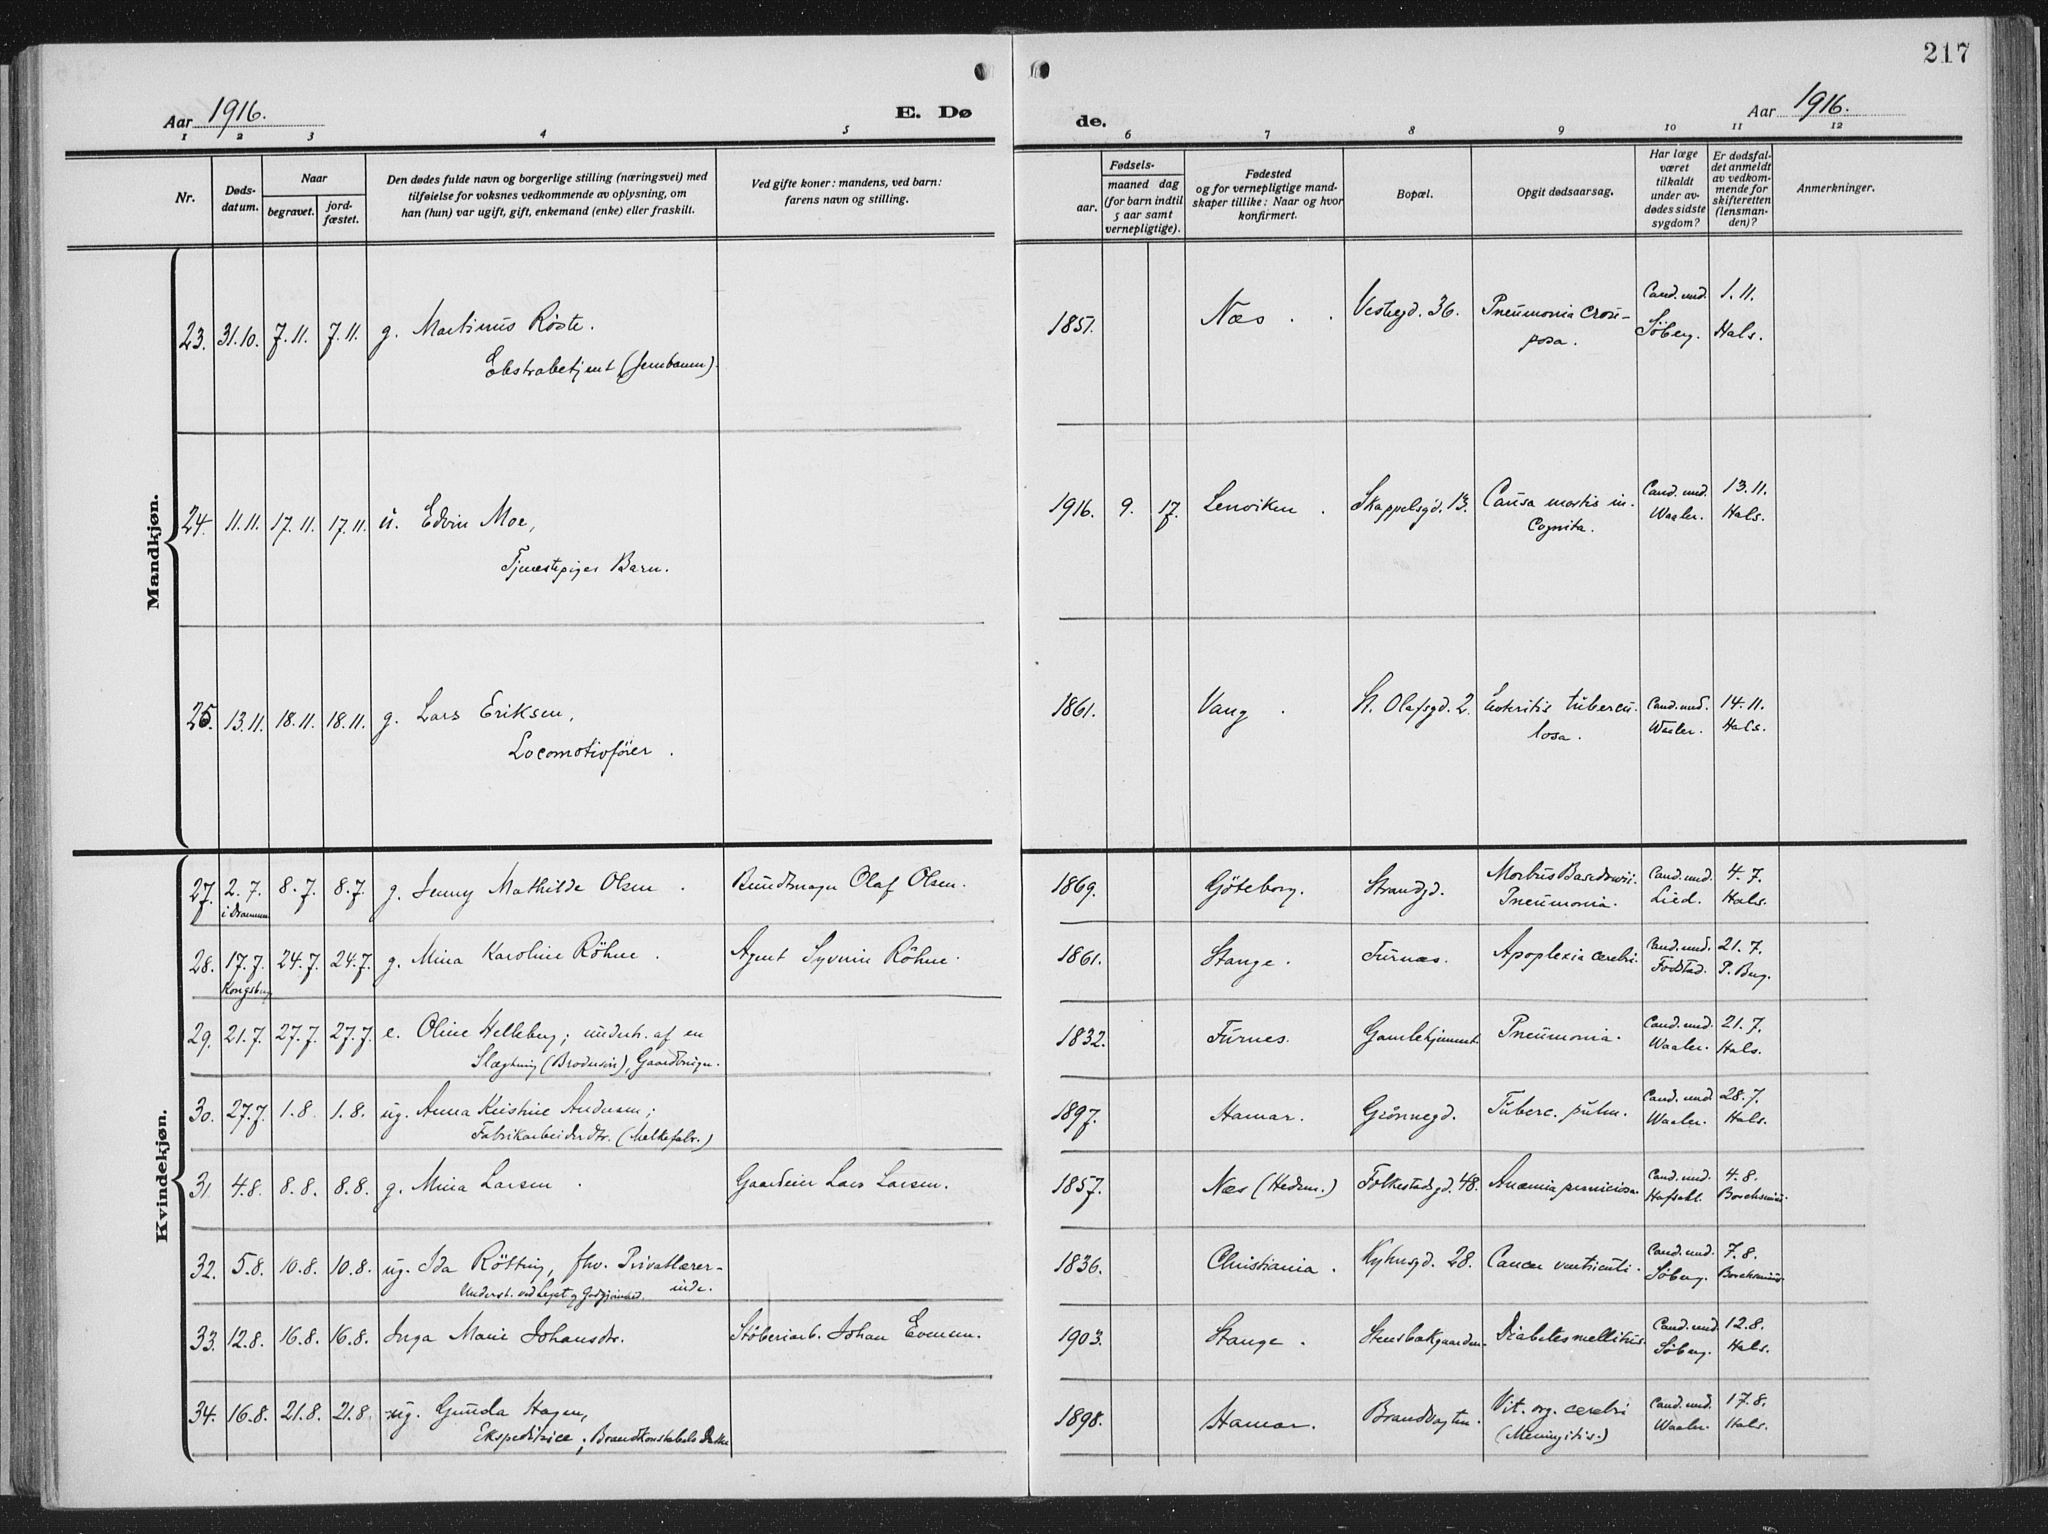 217
Aar 1916.
E. Dø
de.
Aar 1916.
1 2 3 4 5 6 7 8 9 10 11 12
Nr.
Døds-
datum.
Naar
begravet.
jord-
fæstet.
Den dødes fulde navn og borgerlige stilling (næringsvei) med
tilføielse for voksnes vedkommende av oplysning, om
han (hun) var ugift, gift, enkemand (enke) eller fraskilt.
Ved gifte koner: mandens, ved barn:
farens navn og stilling.
Fødsels-
aar.
maaned dag
(for barn indtil
5 aar samt
vernepligtige).
Fødested
og for vernepligtige mand-
skaper tillike: Naar og hvor
konfirmert.
Bopæl.
Opgit dødsaarsag.
Har læge
været
tilkaldt
under av-
dødes sidste
sygdom?
Er dødsfal-
det anmeldt
av vedkom-
mende for
skifteretten
(lensman-
den)?
Anmerkninger.
Mandkjøn.
23. 31.10. 7.11. 7.11. g. Martinus Röste. 1851. Næs. Vestregd. 36. Pneumonia crou- Cand. med. 1.11.
Ekstrabetjent (Jernbanen). posa. Söberg. Hals.
24. 11.11. 17.11. 17.11. u. Edvin Moe, 1916. 9. 17. Lenviken. Skappelsgd. 13. Causa mortis in- Cand. med. 13.11.
Tjenestepiges Barn. cognita. Waaler. Hals.
25. 13.11. 18.11. 18.11. g. Lars Eriksen, 1861. Vang. St. Olafsgd. 2. Enteritis tubercu- Cand. med. 14.11.
Locomotivfører. losa. Waaler. Hals.
Kvindekjøn.
27. 2.7. 8.7. 8.7. g. Jenny Mathilde Olsen. Buntmager Olaf Olsen. 1869. Göteborg. Strandgd. Morbus Basedowii. Cand. med. 4.7.
i Drammen Pneumonia. Lied. Hals.
28. 17.7. 24.7. 24.7. g. Mina Karoline Röhne. Agent Syverin Röhne. 1861. Stange. Furnæs. Apoplexia cerebri. Cand. med. 21.7.
Kongsberg Fodstad. P. Berg.
29. 21.7. 27.7. 27.7. e. Oline Helleberg; underh. af en 1832. Furnes. Gamlehjemmet. Pneumonia. Cand. med. 21.7.
Slægtning (Brodersön), Gaardbruger. Waaler. Hals.
30. 27.7. 1.8. 1.8. ug. Anna Kristine Andersen; 1897. Hamar. Grönnegd. Tuberc. pulm. Cand. med. 28.7.
Fabrikarbeiderdtr. (Melkefabr.) Waaler. Hals.
31. 4.8. 8.8. 8.8. g. Mina Larsen. Gaardeier Lars Larsen. 1857. Næs (Hedem.) Folkestadsgd. 48. Anæmia perniciosa. Cand. med. 4.8.
Hafsahl.
32. 5.8. 10.8. 10.8. ug. Ida Rötting, fhv. Privatlærer- 1836. Christiania. Kyhnsgd. 28. Cancer ventriculi. Cand. med. 7.8.
Underst. ved Legat og Godgjörenhed. inde. Söberg.
33. 12.8. 16.8. 16.8. Inga Marie Johansdtr. Stöberiarb. Johan Evensen. 1903. Stange. Stensbakgaarden. Diabetes mellitus. Cand. med. 12.8.
Söberg. Hals.
34. 16.8. 21.8. 21.8. ug. Gunda Hagen, 1898. Hamar. Brandvagten. Vit. org. cerebri Cand. med. 17.8.
Ekspeditrice; Brandkonstabels Datter (Meningitis.) Waaler. Hals.